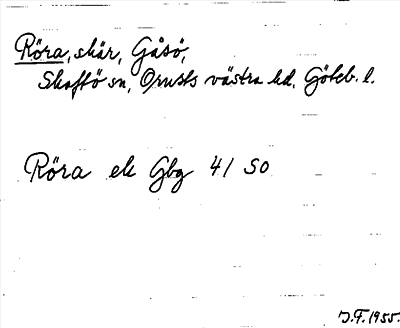 Röra, skär, Gåsö,
Skaftö sn, Orusts västra hd. Göteb. l.
Röra ek Gbg 41 SO
J.F. 1955.